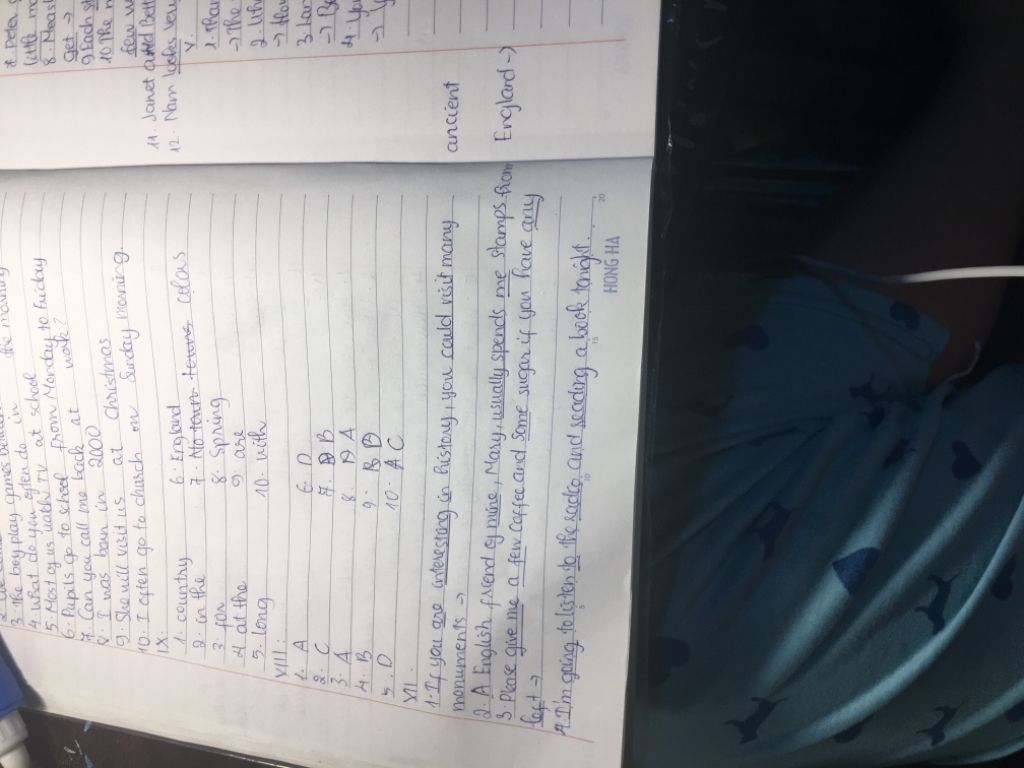 3. The boy play games
4. What do you often do in the morning
5. Most of us watch TV at school
6. Pupils go to school from Monday to Friday
7. Can you call me back at work?
8. I was born in 2000
9. She will visit us at Christmas
10. I often go to church on Sunday morning.
IX
1. country 6. England
2. in the 7. colors
3. for 8. Spring
4. at the 9. are
5. long 10. with
VIII.
1. A 6. D
2. C 7. B
3. A 8. A
4. B 9. B D
5. D 10. A C
XII.
1. If you are interesting in history, you could visit many ancient
monuments →
2. A English friend of mine, Mary, usually spends me stamps from England →
3. Please give me a few coffee and some sugar if you have any
left →
4. I'm going to listen to the radio and reading a book tonight.
HONG HA
8. Meat
get →
9. Each
10. The
few
11. Janet and Bett
12. Nam looks ver
X.